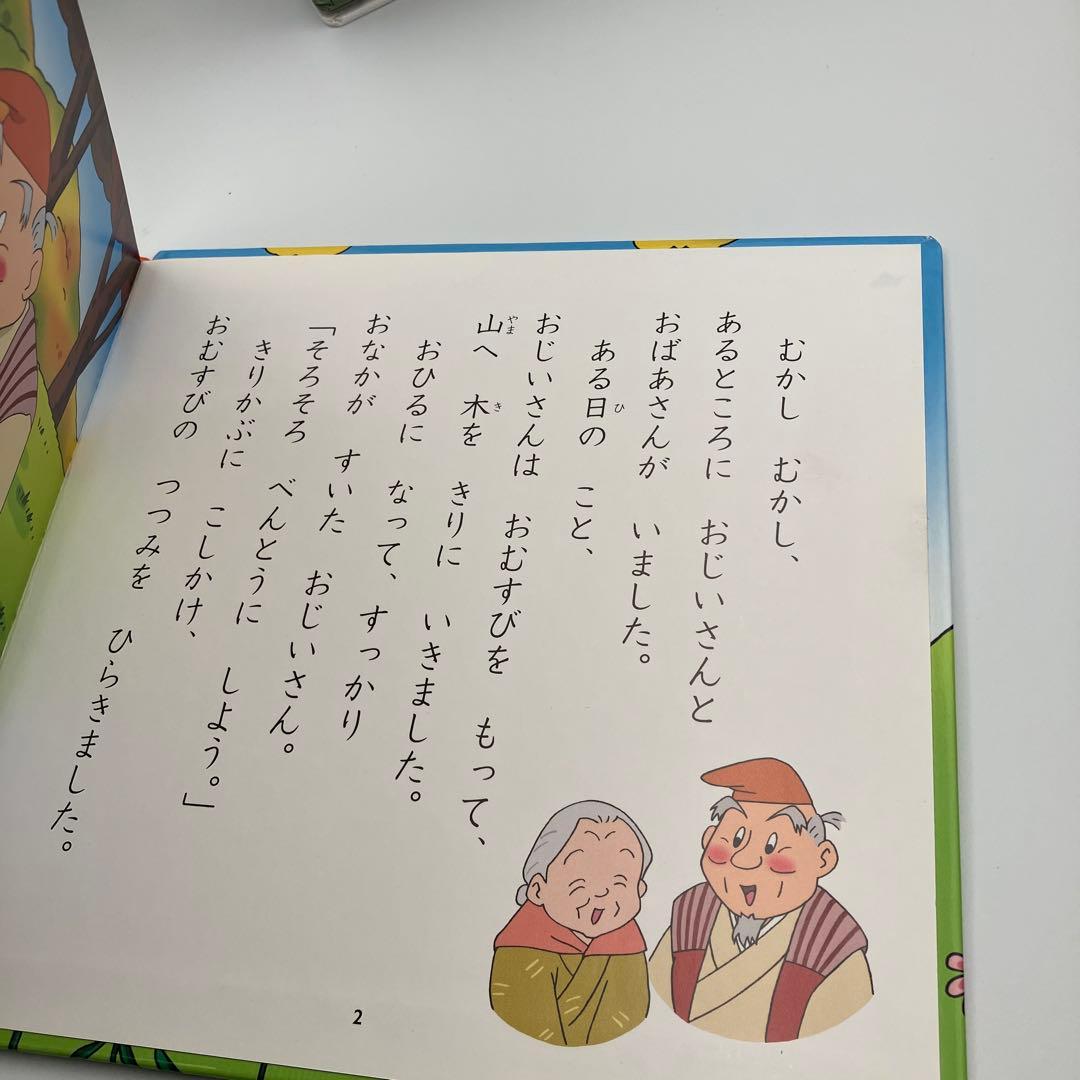 むかし むかし、
あるところに おじいさんと
おばあさんが いました。
ある日の こと、
おじいさんは おむすびを もって、
山へ 木を きりに いきました。
おひるに なって、すっかり
おなかが すいた おじいさん。
「そろそろ べんとうに しよう。」
きりかぶに こしかけ、
おむすびの つつみを ひらきました。
ひ
やま
き
2